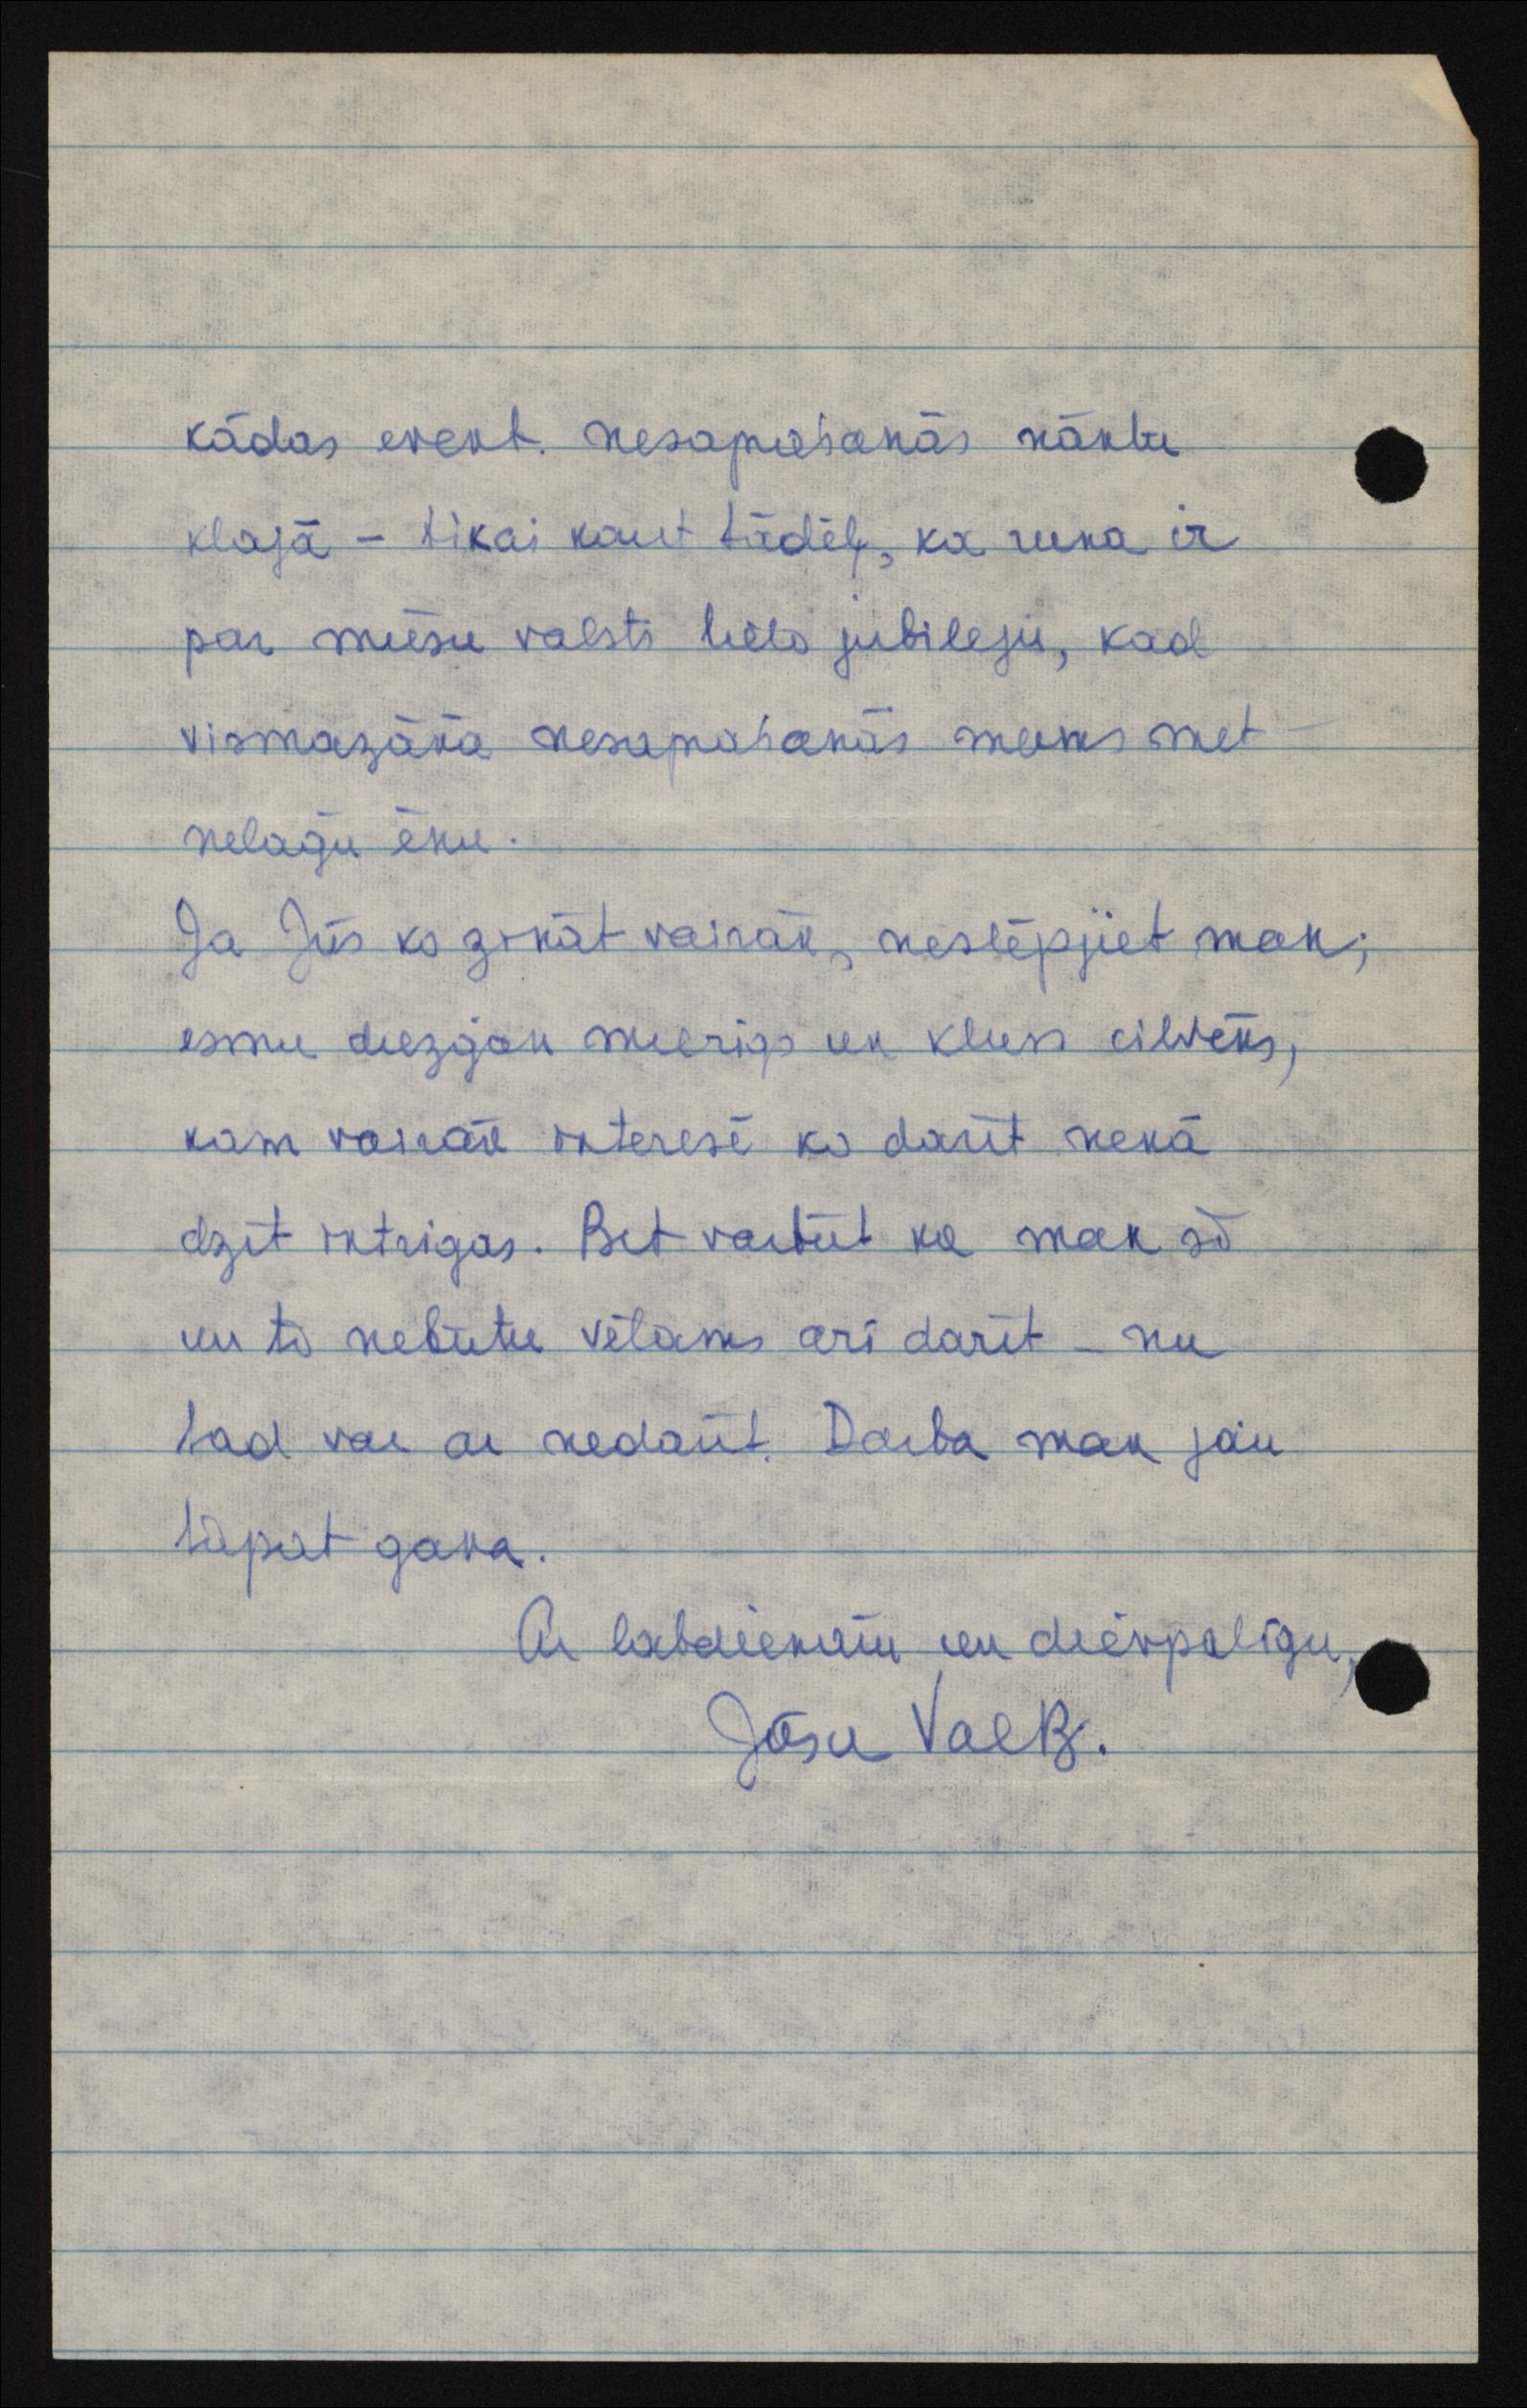 kādas event. nesaprašanās nāktu
klajā – tikai kaut tādēļ, ka runa ir
par mūsu valsts lielo jubileju, kad
vismazākā nesaprašanās mums met
nelāgu ēnu.
Ja Jūs ko zināt vairāk, neslēpjiet man;
esmu diezgan mierīgs un kluss cilvēks,
kam vairāk interesē ko darīt nekā
dzīt intrigas. Bet varbūt ka man šo
un to nebūtu vēlams arī darīt – nu
tad var ar nedarīt. Darba man jau
tāpat gana.
Ar labdienām un dievpalīgu,
Jūsu ValB.